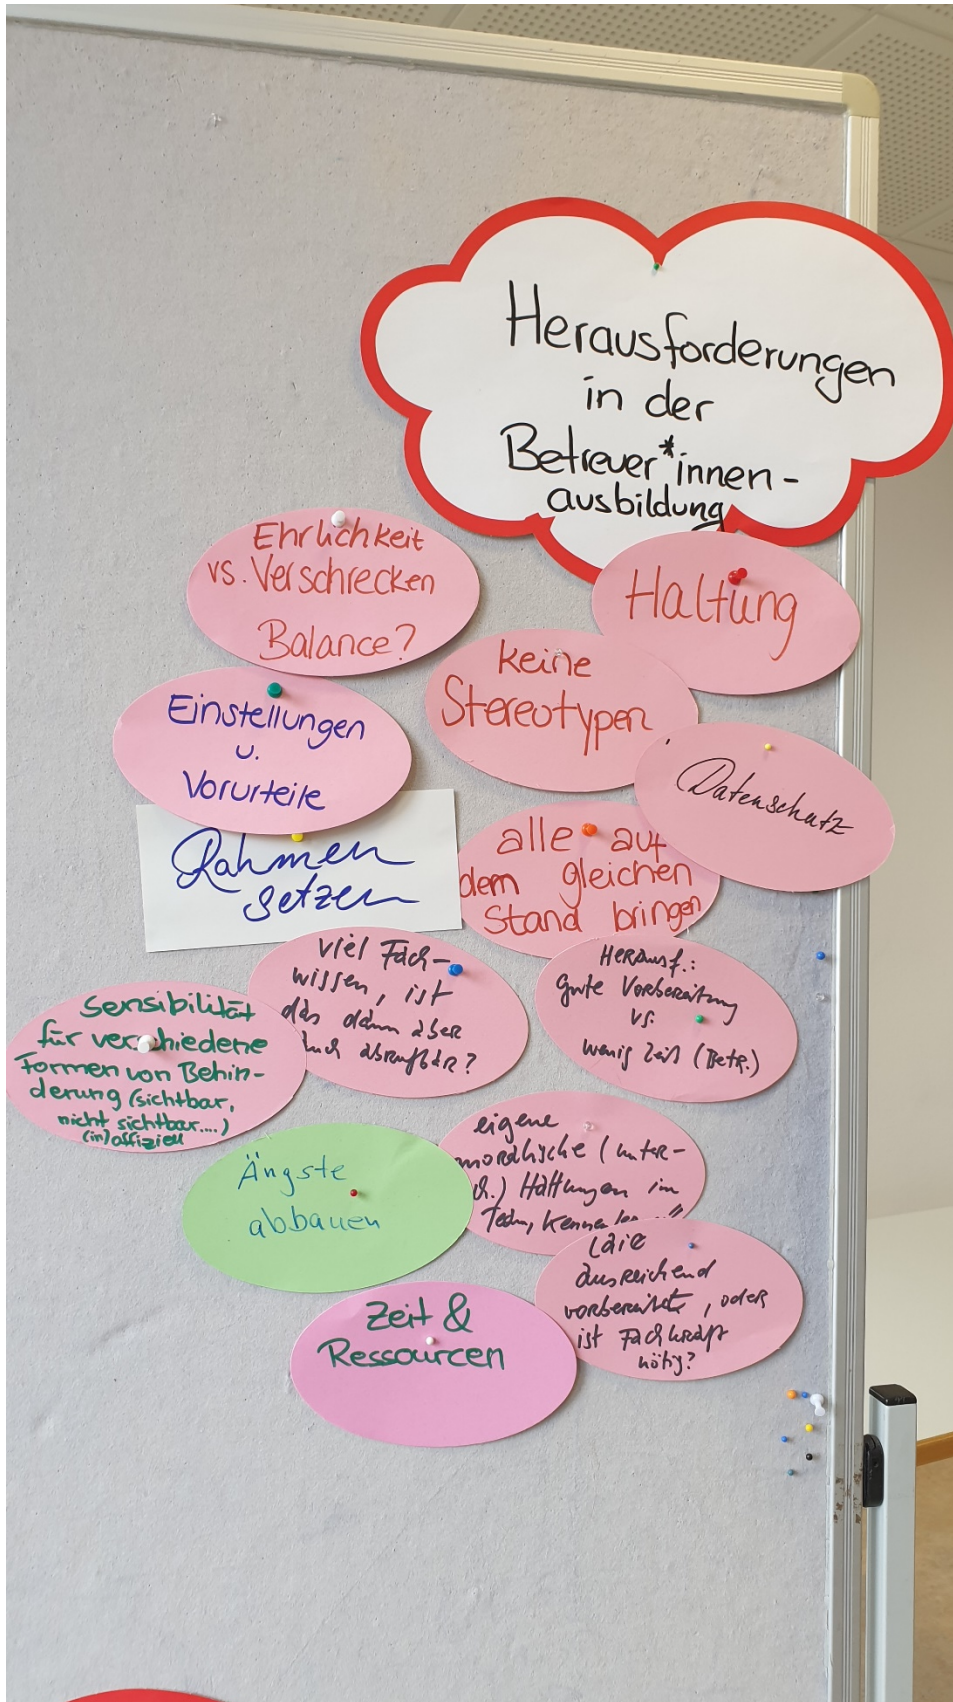 Herausforderungen
in der
Betreuer*innen-
ausbildung
Ehrlichkeit
vs. Verschrecken
Balance?
Haltung
keine
Stereotypen
Einstellungen
u.
Vorurteile
Datenschutz
Rahmen
setzen
alle auf
dem gleichen
Stand bringen
viel Fach-
wissen, ist
das dann aber
auch abrufbar?
Herausf.:
gute Vorbereitung
vs.
wenig Zeit (Betr.)
Sensibilität
für verschiedene
Formen von Behin-
derung (sichtbar,
nicht sichtbar....)
(in)offiziell
eigene
moralische (unter-
Haltungen im
Team,
Ängste
abbauen
ausreichend
vorbereitet, oder
ist Fachkraft
nötig?
Zeit &
Ressourcen